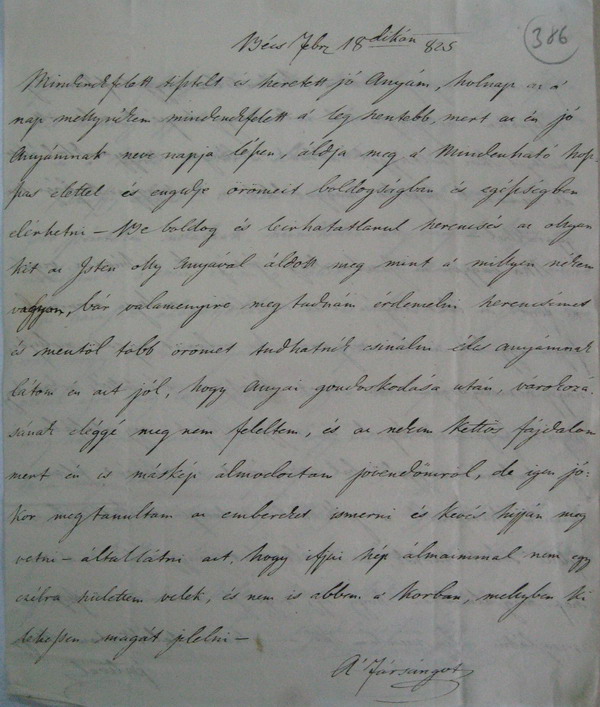 Bécs Febr 18dikán 825
386
Mindenekfelett tisztelt és szeretett jó Anyám, holnap az a
nap melly nékem mindenekfelett a legszentebb, mert az én jó
Anyámnak neve napja lészen, áldja meg a Mindenható hosz-
szas élettel és engedje örömeit boldogságban és egésségben
elérhetni – Be boldog és leirhatatlanul szerencsés az ollyan
kit az Isten olly Anyával áldott meg mint a millyen nékem
vagyon, bár valamenyire meg tudnám érdemelni szerencsémet
és mentöl több örömet tudhatnék csinálni édes anyámnak
látom én azt jól, hogy Anyai gondoskodása után, várakozá-
sának eléggé meg nem feleltem, és az nekem kettős fájdalom
mert én is másképp álmodoztam jövendőmröl, de igen jó-
kor megtanultam az embereket ismerni és kevés híjján meg
vetni – általlátni azt, hogy ifjui szép álmaimmal nem egy
czélra születtem velek, és nem is abban a korban, melyben ki
lehessen magát jelelni –
A' Fársángot